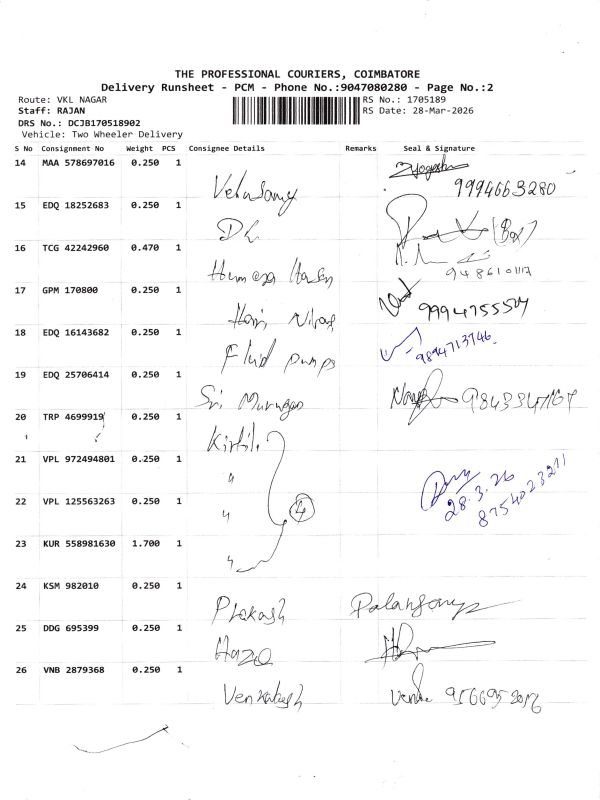 THE PROFESSIONAL COURIERS, COIMBATORE
Delivery Runsheet - PCM - Phone No.:9047080280 - Page No.:2
Route: VKL NAGAR
RS No.: 1705189
Staff: RAJAN
RS Date: 28-Mar-2026
DRS No.: DCJB170518902
Vehicle: Two Wheeler Delivery
S No Consignment No Weight PCS Consignee Details Remarks Seal & Signature
14 MAA 578697016 0.250 1
Velusamy 9994663280
15 EDQ 18252683 0.250 1
16 TCG 42242960 0.470 1
17 GPM 170800 0.250 1
Hari
18 EDQ 16143682 0.250 1
Fluid pumps 9894713746
19 EDQ 25706414 0.250 1
Sri Murugan
20 TRP 4699919 0.250 1
21 VPL 972494801 0.250 1
"
28.3.26
22 VPL 125563263 0.250 1
" 4
8754023211
23 KUR 558981630 1.700 1
"
24 KSM 982010 0.250 1
Prakash
25 DDG 695399 0.250 1
26 VNB 2879368 0.250 1
Venkatesh